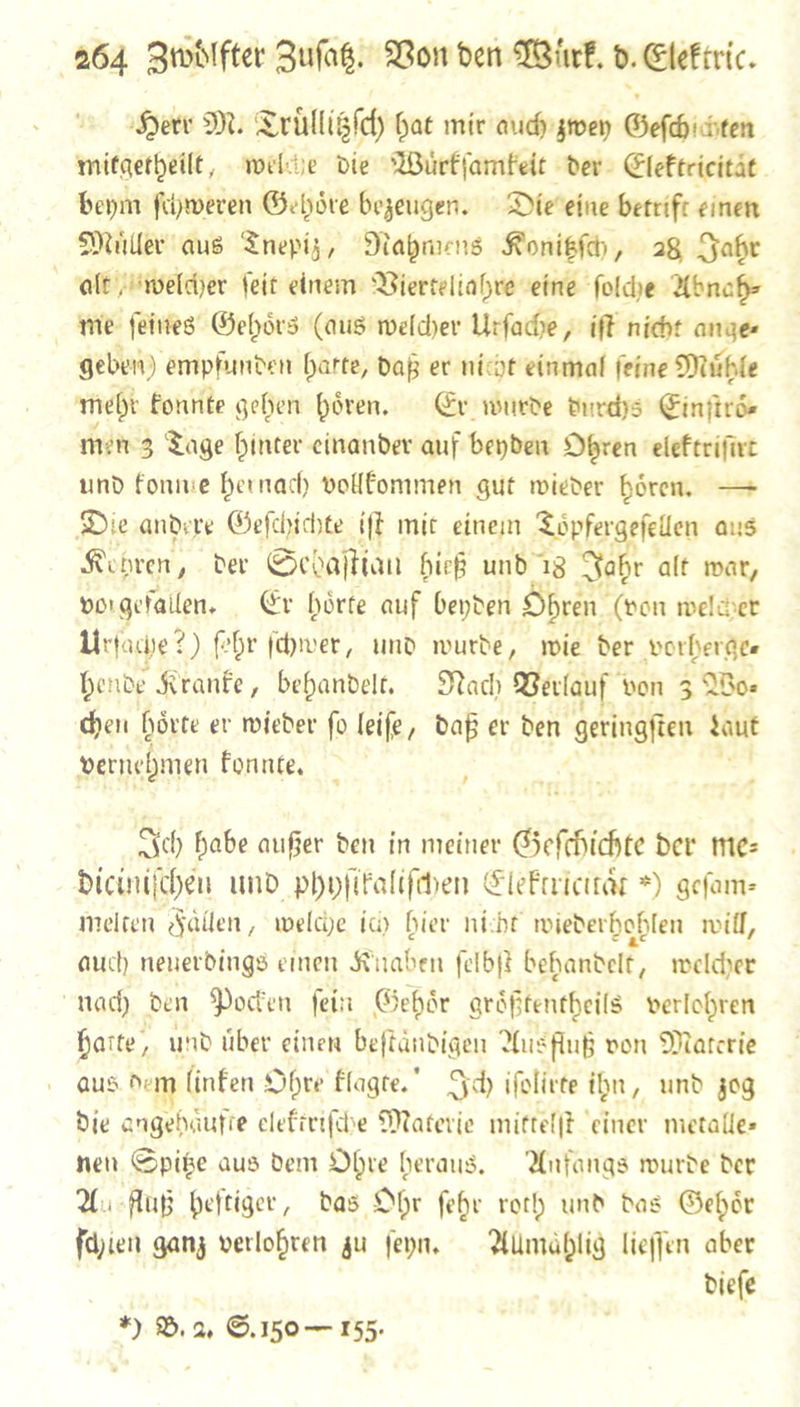 264 Zwölfter Zusatz. Von den Würk. d. Elektric.
Herr M. Trüllitzsch hat mir auch zwey Geschichten
mitgetheilt, welche die Würksamkeit der Elektricität
beym schweren Gehöre bezeugen. Die eine betrift einen
Müller aus Tnepiz, Nahmens Konitzsch, 28 Jahr
alt, welcher seit einem Vierteljahre eine solche Abnah-
me seines Gehörs (aus welcher Ursache, ist nicht ange-
geben) empfunden hatte, daß er nicht einmal seine Mühle
mehr konnte gehen hören. Er wurde durchs Einströ-
men 3 Tage hinter einander auf beyden Ohren elektrisirt
und konnte hernach vollkommen gut wieder hören. —
Die andere Geschichte ist mit einem Töpfergesellen aus
Kehren, der Sebastian hieß und 18 Jahr alt war,
vorgefallen. Er hörte auf beyden Ohren (von welcher
Ursache?) sehr schwer, und wurde, wie der vorherge-
hende Kranke, behandelt. Nach Verlauf von 3 Wo-
chen hörte er wieder so leise, daß er den geringsten Laut
vernehmen konnte.
Ich habe außer den in meiner Geschichte der me-
dicinischen und physikalischen Elektricität *) gesam-
melten Fällen, welche ich hier nicht wiederhohlen will,
auch neuerdings einen Knaben selbst behandelt, welcher
nach den Pocken sein Gehör größtentheils verlohren
hatte, und über einen beständigen Ausfluß von Materie
aus dem linken Ohre klagte. Ich isolirte ihn, und zog
die angehäufte elektrische Materie mittelst einer metalle-
nen Spitze aus dem Ohre heraus. Anfangs wurde der
Ausfluß heftiger, das Ohr sehr roth und das Gehör
schien ganz verlohren zu seyn. Allmählig liessen aber
diese
*) B. 2. S. 150—155.